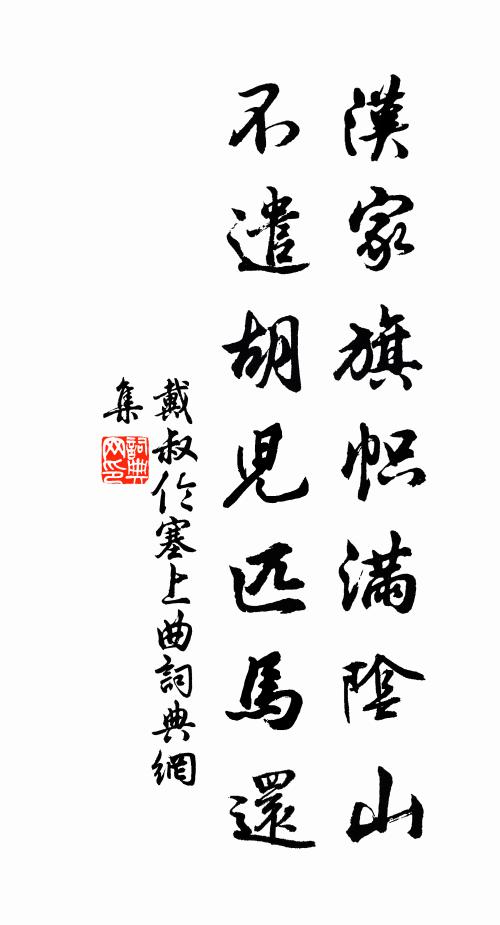 漢家旗帜滿陰山
不遣胡兒匹馬還
戴叔伦塞上曲詞典網
集
詞典
网印